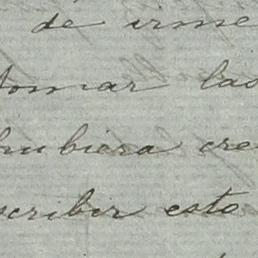 de irme
tomar las
hubiera cre
scribir esto